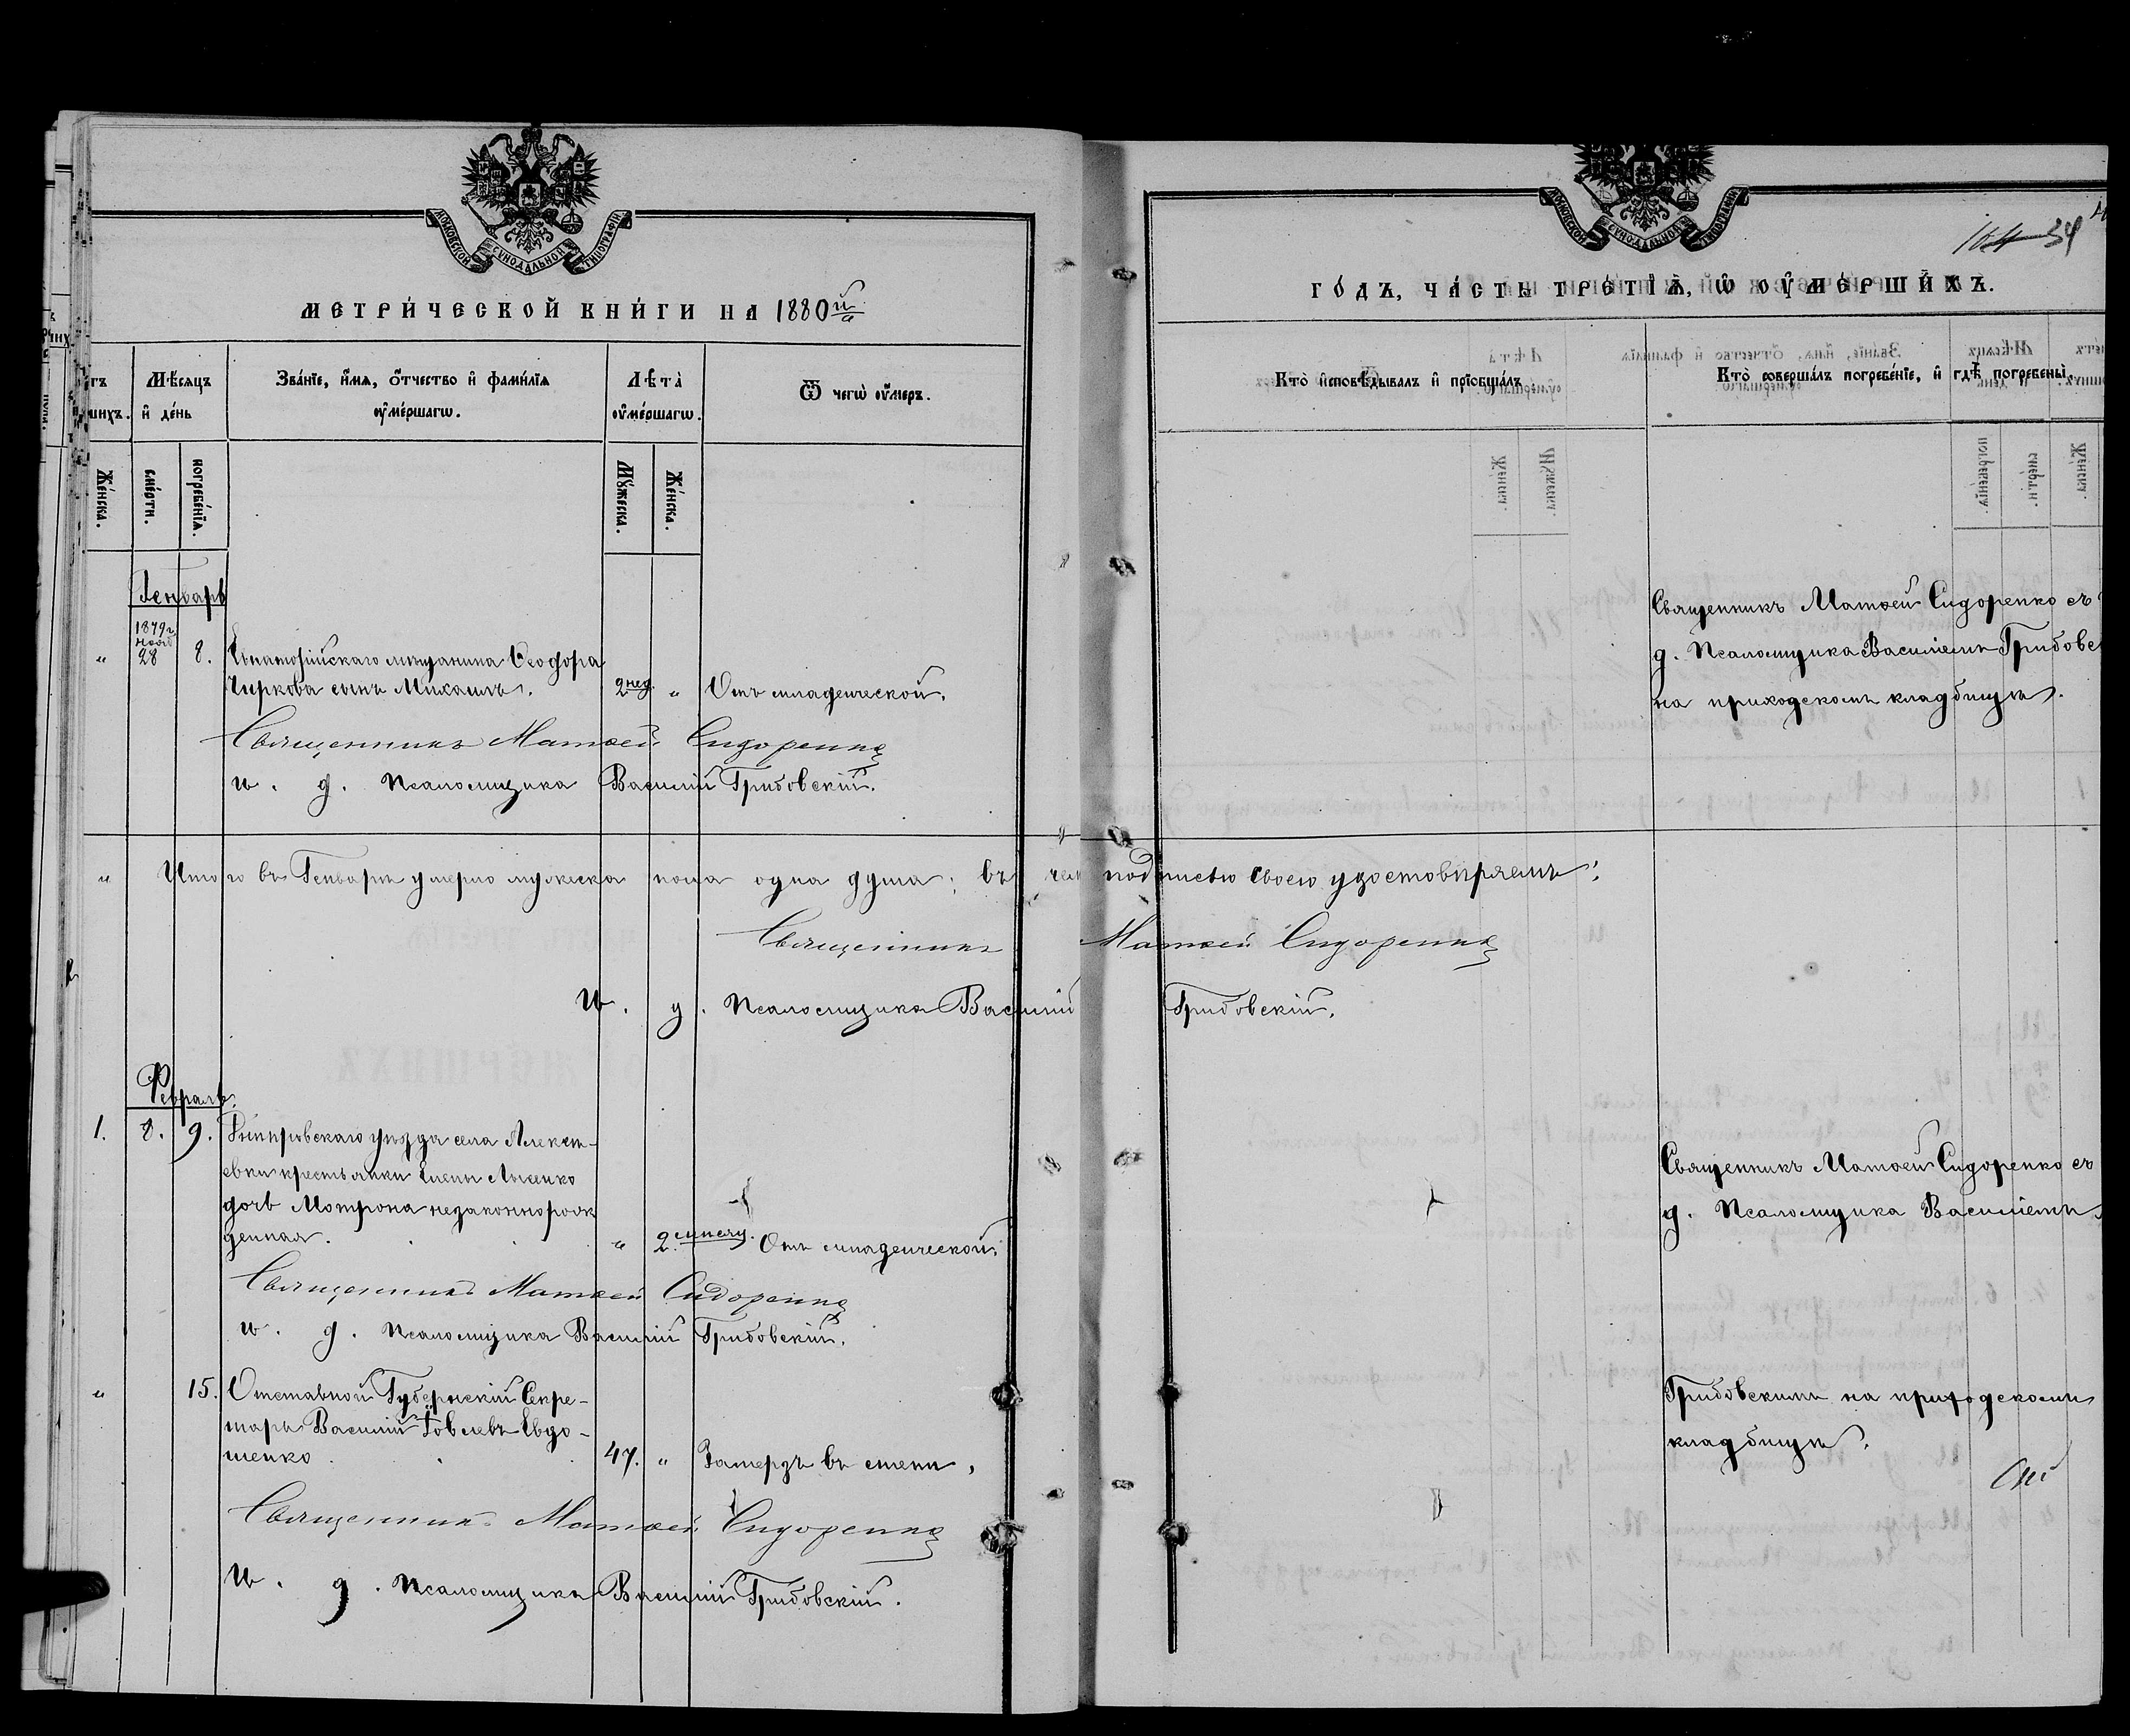 МОСКОВСКОЙ СѴНОДАЛЬНОЙ ТИПОГРАФІИ
МЕТРИ́ЧЕСКОЙ КНИ́ГИ НА 1880й
Мѣсяцъ и де́нь
Зва́нїе, и҆́мѧ, ѻ҆́тчество и҆ фами́лїѧ ᲂу҆ме́ршагѡ.
Лѣта̀ ᲂу҆ме́ршагѡ.
Ѿ чегѡ̀ ᲂу҆́меръ.
Же́нска.
сме́рти.
погребе́нїѧ.
Мꙋ́жеска.
Же́нска.
Генварь
1879 г.
нояб
" 28 8. Евпаторійскаго мѣщанина Ѳеодора
Чиркова сынъ Михаилъ. 2 нед. " Отъ младенческой.
Священникъ Матѳей Сидоренко
и. д. Псаломщика Василій Грибовскій.
" Итого въ Генварѣ умерло мужеска пола одна душа; въ чем
Священникъ
И. д. Псаломщика Василій
Февраль.
1. 8. 9. Днѣпровскаго уѣзда села Алексѣ-
евки крестьянки Елены Лысенко
дочь Мотрона незаконнорож
денная. " 2. мѣсяц. Отъ младенческой.
Священникъ Матѳей Сидоренко
и. д. Псаломщика Василій Грибовскій.
" 15. Отставной Губернскій Секре-
тарь Василій Евдо-
шенко. 47. " Замерзъ въ степи.
Священникъ Матѳей Сидоренко
И. д. Псаломщика Василій Грибовскій.
МОСКОВСКОЙ СѴНОДАЛЬНОЙ ТИПОГРАФІИ
164 34
ГО́ДЪ, ЧА́СТЬ ТРЕ́ТЇѦ, Ѡ҆ ОУ҆МЕ́РШИХЪ.
Кто̀ и҆сповѣ́дывалъ и҆ прїѡбща́лъ
Кто̀ соверша́лъ погребе́нїе, и҆ гдѣ̀ погребены̀.
Священникъ Матѳей Сидоренко съ
д. Псаломщика Василіемъ Грибовс
на приходскомъ кладбищѣ.
подписью своею удостовѣряемъ:
Матѳей Сидоренко
Грибовскій.
Священникъ Матѳей Сидоренко съ
д. Псаломщика Василіемъ
Грибовскимъ на приходскомъ
кладбищѣ.